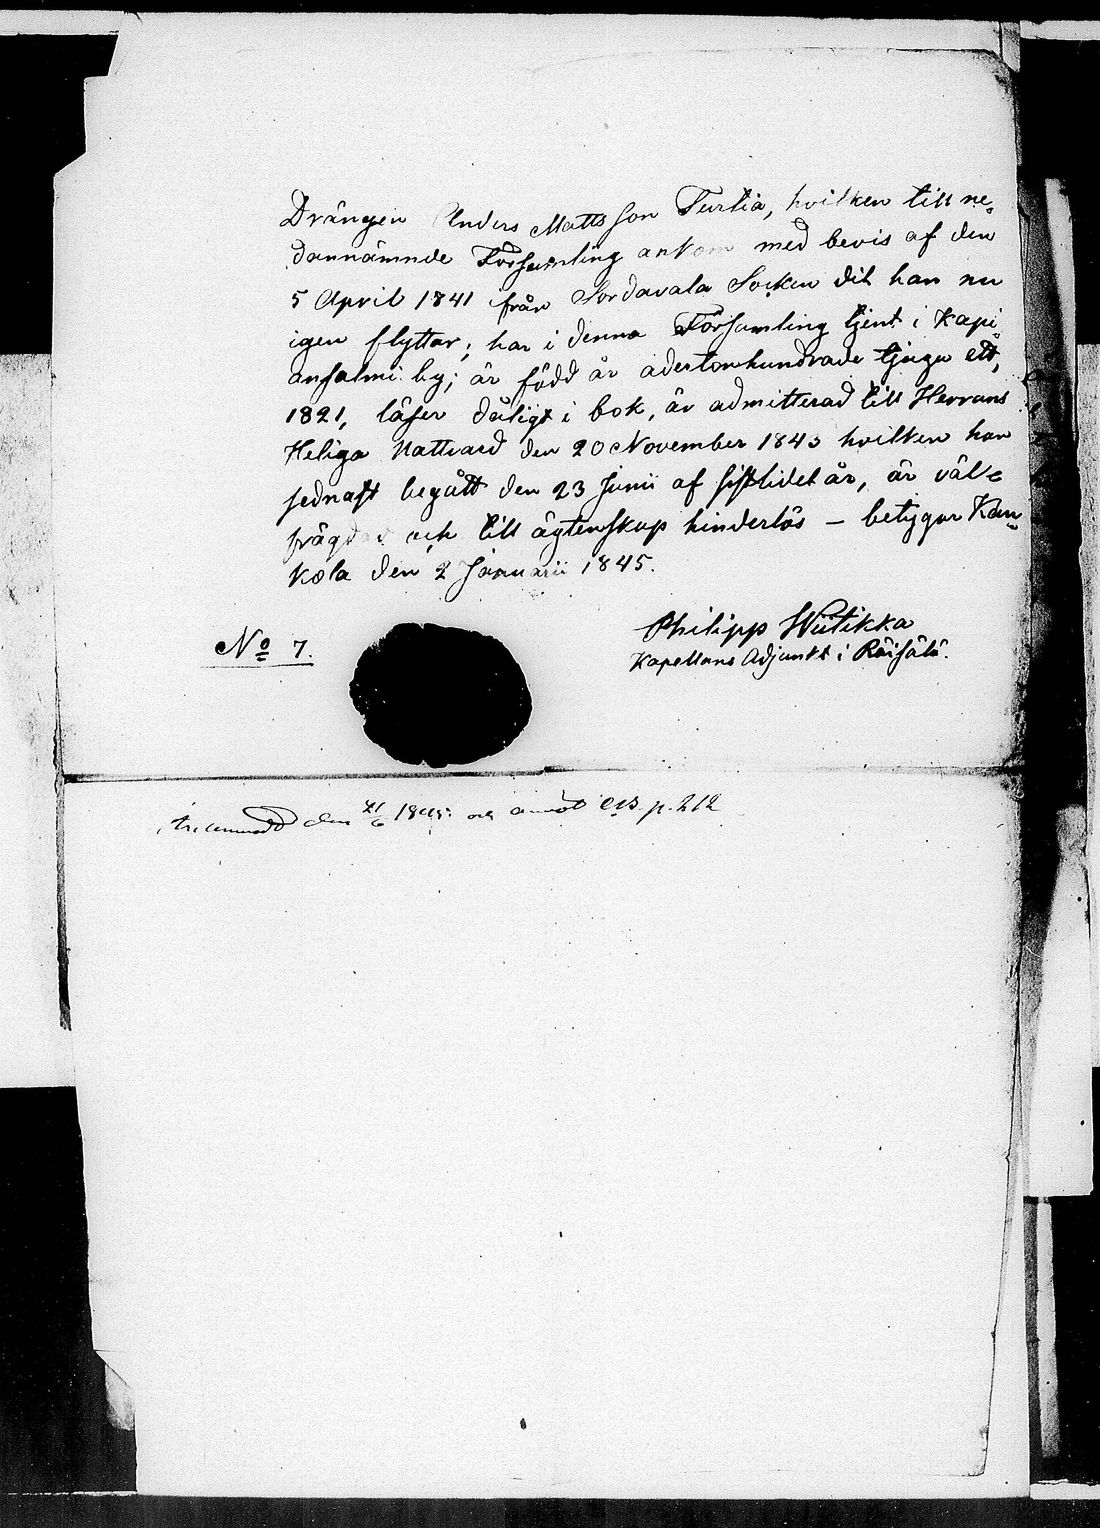 Drängen Anders Matts son Turtia, hvilken till ne=
dannämnde Församling ankom med bevis af den
5 April 1841 från Sordavala Socken dit han nu
igen flyttar; har i denna Församling tjent i Kapi=
ansalmi by; är född år adertonhundrade tjugu ett,
1821, läser dåligt i bok, är admitterad till Herrans
Heliga Nattvard den 20 November 1843 hvilken han
sednast begått den 23 Junii af sistlidet år, är väl=
frägdad och till ägtenskap hinderlös – betygar Kau=
kola den 2 Januarii 1845.
Philipp Wiitikka
Kapellans Adjunkt i Räisälä.
No 7.
den 21/6 1845 och p. 212